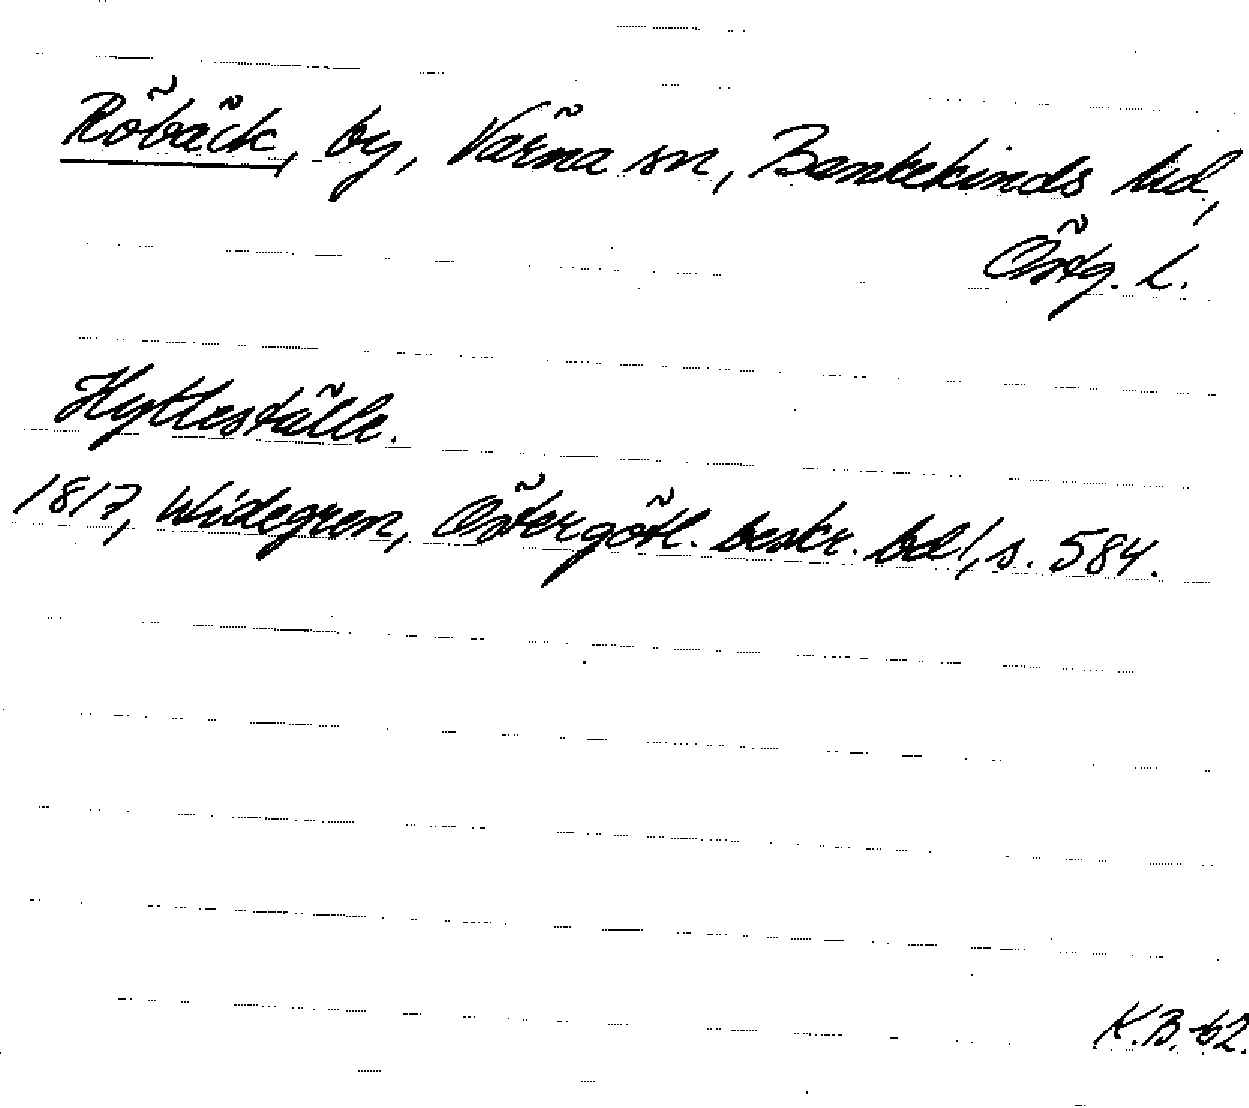 Röbäck, by, Värna sn, Bankekinds hd,
Östg. L.
Hytteställe.
1817, Widegren, Östergötl. beskr. bd 1, s. 584.
K.B.-62.